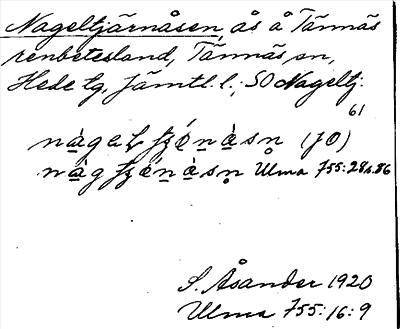 Nageltjärnåsen, ås å Tännäs
renbetesland, Tännäs sn,
Hede tg, Jämtl. l.; SO Nageltj.
61
(JO)
Ulma 755:28 s. 86
S. Åsander 1920
Ulma 755:16:9